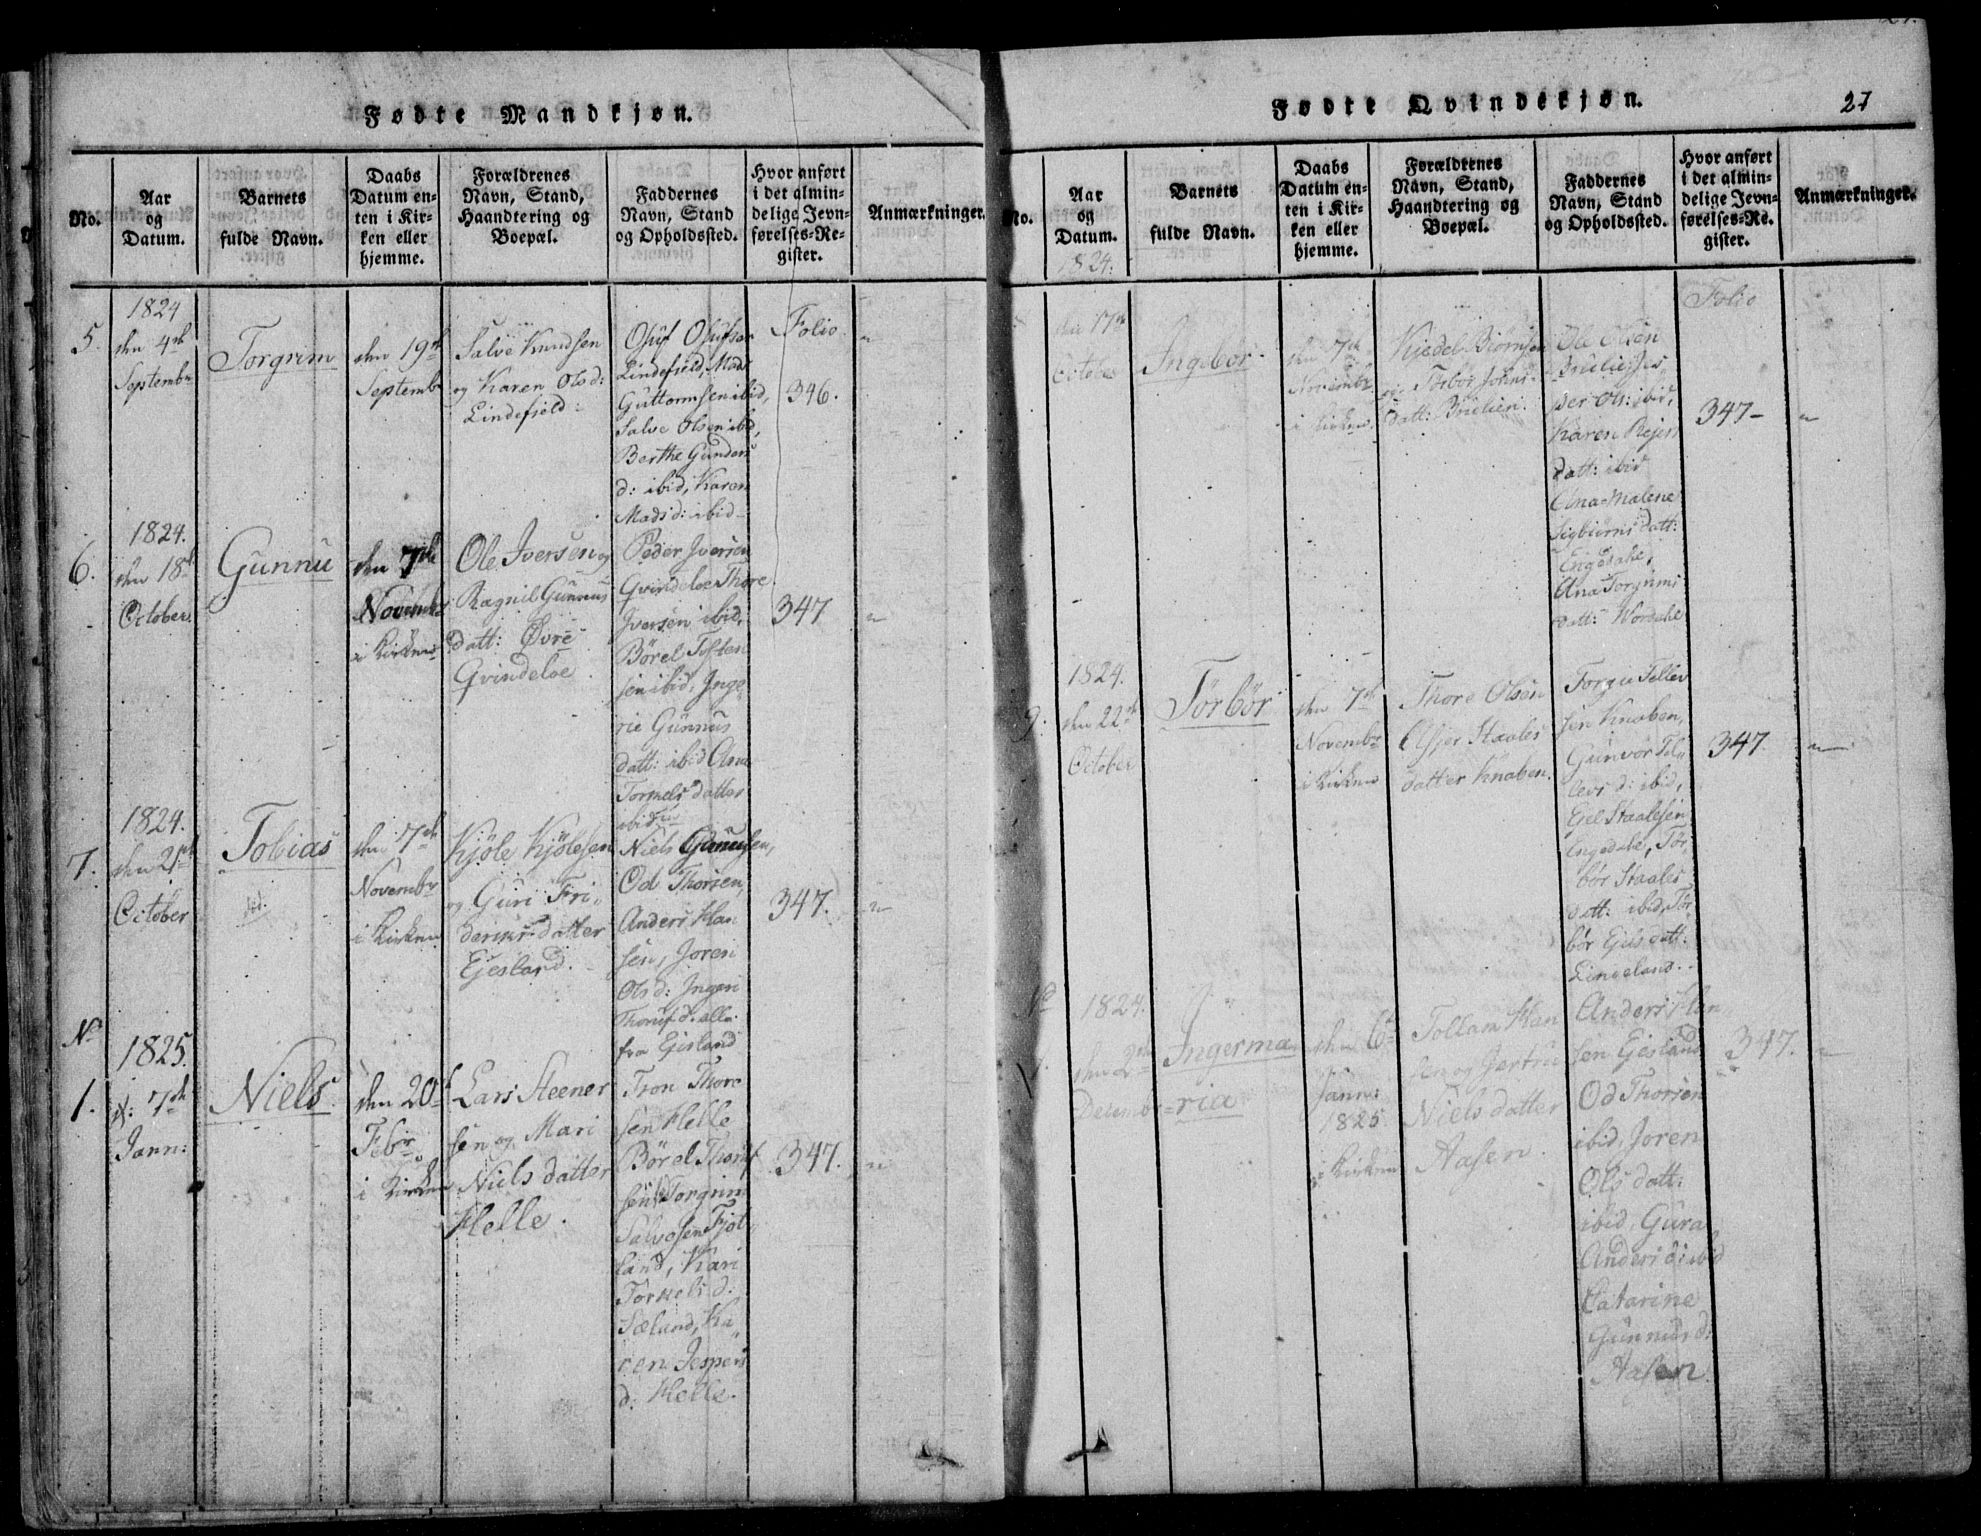 Fødte Mandkjøn.
No.
Aar
og
Datum.
Barnets
fulde Navn.
Daabs
Datum en-
ten i Kir-
ken eller
hjemme.
Forældrenes
Navn, Stand,
Haandtering og
Boepæl.
Faddernes
Navn, Stand
og Opholdssted.
Hvor anført
i det almin-
delige Jevn-
førelses-Re-
gister.
Anmærkninger.
5.
1824
den 4de
Septembr
Torgrim
den 19de
Septembr
Salve Knudsen
og Karen Olsd:
Lindefield:
Osuf Osufsen
Lindefield, Mads
Guttormsen ibid,
Salve Olsen ibid,
Berthe Gunders
d: ibid, Karen
Madsd: ibid
Folio
346.
6.
1824.
den 18de
October
Gunnu
den 7de
Novembr
i Kirken
Ole Iversen og
Ragnil Gunnus
datt: Øvre
Qvindeloe
Peder Iversen
Qvindeloe Thore
Iversen ibid,
Börel Tosten
sen ibid, Inge
rie Gunnus
datt: ibid
Tormels datter
ibid
347
7.
1824.
den 21de
October
Tobias
den 7de
Novembr
i Kirken
Kjöle Kjölesen
og Guri Fri-
daricks datter
Ejesland.
Niels Gunnusen,
Od Thorsen,
Anders Han
sen, Joren
Olsd: Ingeri
d: alle
fra Eiesland
347.
No
1.
1825.
d: 7de
Jann:
Niels
den 20de
Febr
i Kirken
Lars Steener
sen og Mari
Niels datter
Helle.
Tron Thore
sen Helle
Börel
sen Torgrim
Salvesen Fjot
land, Kari
Tormels d.
Sæland, Ka
ren Jespers
d: Helle.
347.
Fødte Qvindekjøn.
27
No.
Aar
og
Datum.
Barnets
fulde Navn.
Daabs
Datum en-
ten i Kir-
ken eller
hjemme.
Forældrenes
Navn, Stand,
Haandtering og
Boepæl.
Faddernes
Navn, Stand
og Opholdssted.
Hvor anført
i det almin-
delige Jevn-
førelses-Re-
gister.
Anmærkninger.
1824.
den 17de
October
Ingebor
den 7de
Novembr
i Kirken
Kjedel Biörnsen
og Torbor Johns
datt:
Ole Olsen
per Ols: ibid,
Karen Rejers
datt: ibid
Ana Malene
Sigbiörns datt:
Engedahl,
Ana Torgrims
datt:
Folio
347
9.
1824.
den 22de
October
Törbör
den 7de
Novembr
i Kirken
Thore Olsen
Asjer Staales
datter Knaben.
Torgie Tellev
sen Knaben,
Gunvor Tel
levs d: ibid,
Ejel Staalesen
Engedahl, Tör
bör Staales
datt: ibid, Tör
bör Ejelsdatt:
Lindeland.
347
No
1.
1824.
den 2de
Decembr
Ingerma
ria
den 6te
Jann:
1825
i Kirken
Tollam Han
sen og Jertru
Niels datter
Aasen.
Anders Han
sen Eiesland
Od Thorsen
ibid, Joren
Ols datt:
ibid, Gura
Anders d: ibid
Catarine
Gunnus d:
Aasen
347.